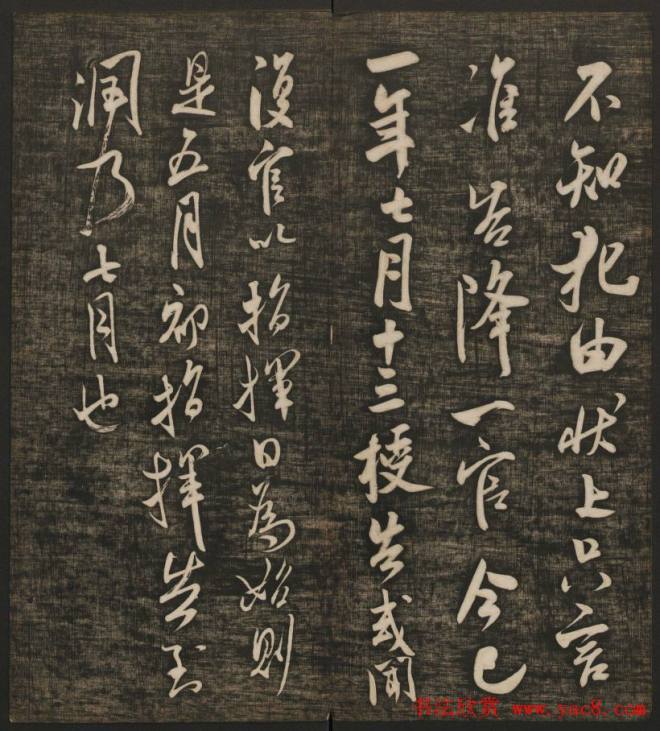 不知犯由状上只言
准告降一官今已
一年七月十三授告或闻
复官以指挥日为始则
是五月初指挥告到
润乃七月也
书法欣赏 www.yac8.com